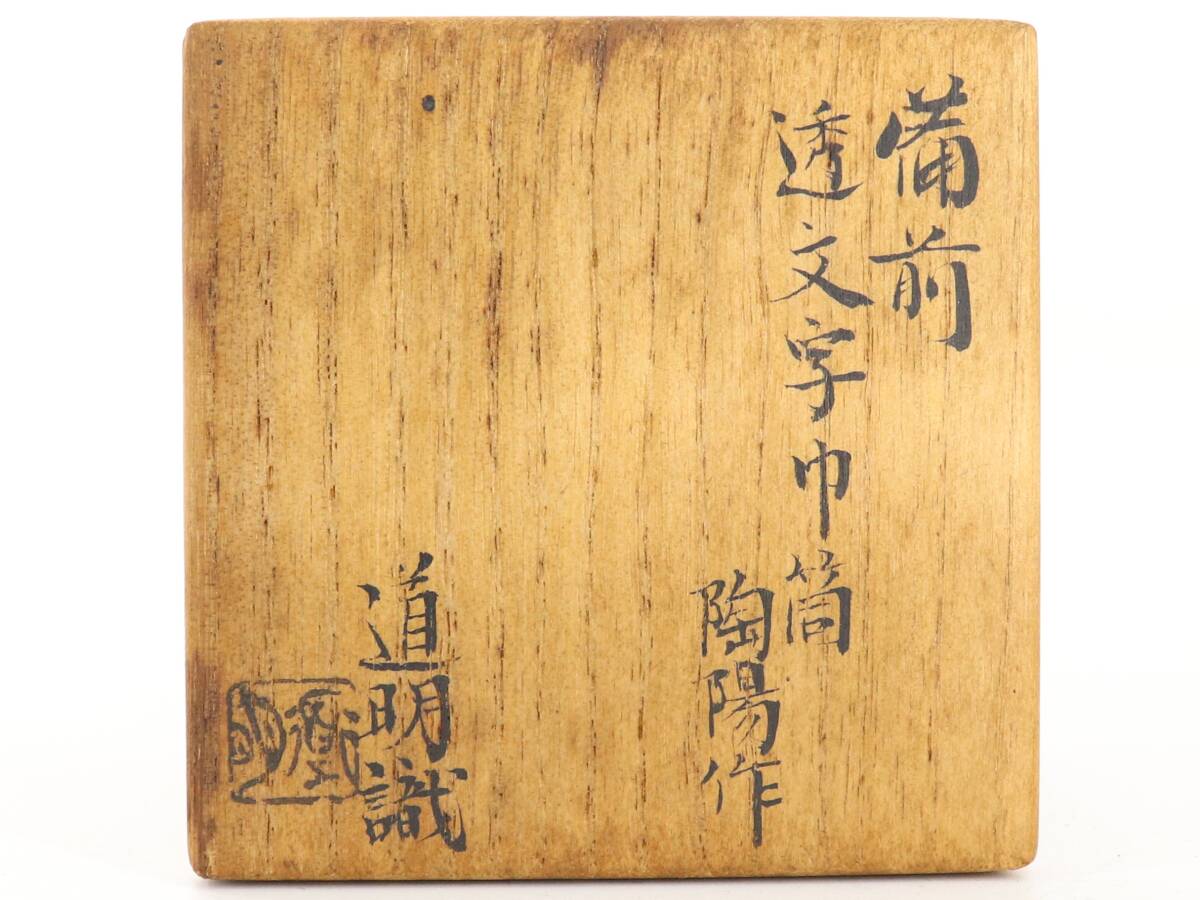 備前
透文字巾筒
陶陽作
道明識